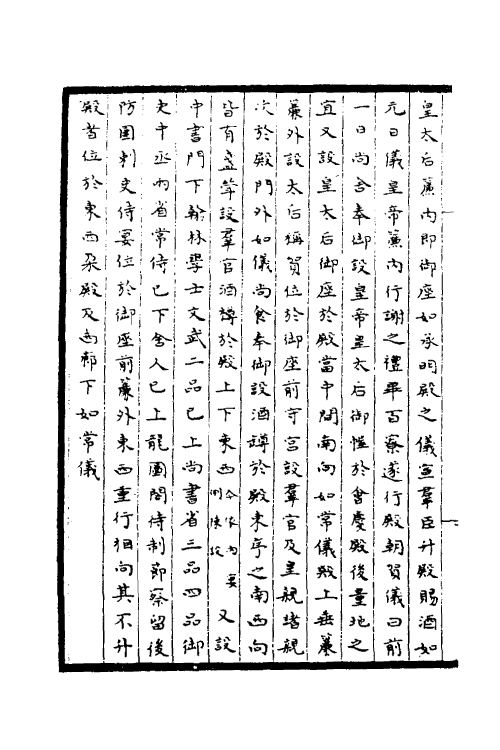 皇太后簾內即御座如承明殿之儀宣羣臣升殿賜酒如
元日儀皇帝簾內行謝之禮畢百寮遂行殿朝賀儀曰前
一日尚舍奉御設皇帝皇太后御幄於會慶殿後量地之
宜又設皇太后御座於殿當中間南向如常儀殿上垂簾
簾外設太后稱賀位於御座前守宮設羣官及皇親諸親
次於殿門外如儀尚食奉御設酒罇於殿東序之南西向
皆有盞斝設羣官酒罇於殿上下東西 又設
中書門下翰林學士文武二品已上尚書省三品四品御
史中丞兩省常侍已下舍人已上龍圖閣待制節察留後
防團刺史侍宴位於御座前簾外東西重行相向其不升
殿者位於東西朶殿及兩廊下如常儀